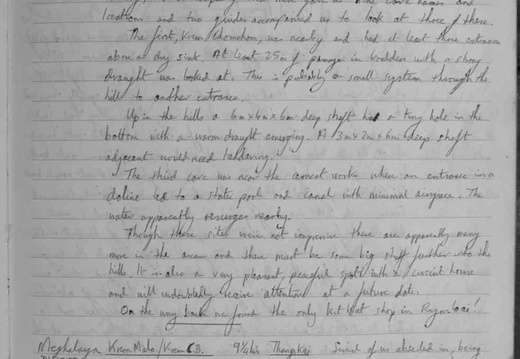 locations and two guides accompanied us to look at three of there.
The first, Krem Chomchom, was nearby and had at least three entrances
above a dry sink. At least 25m of passage in boulders with a strong
draught was looked at. This is probably a small system through the
hill to another entrance.
Up in the hills a 6m x 6m x 6m deep shaft had a tiny hole in the
bottom with a warm draught emerging. A 3m x 2m x 6m deep shaft
adjacent would need laddering.
The third cave was near the cement works where an entrance in a
doline led to a static pool and canal with minimal airspace. The
water apparently resurges nearby.
Though these sites were not impressive there are apparently many
more in the area and there must be some big stuff further into the
hills. It is also a very pleasant, peaceful spot with a circuit house
and will undoubtedly receive attention at a future date.
On the way back we found the only kit kat shop in
Meghalaya Krem Malo / Krem CB. 9¼ hrs of us being